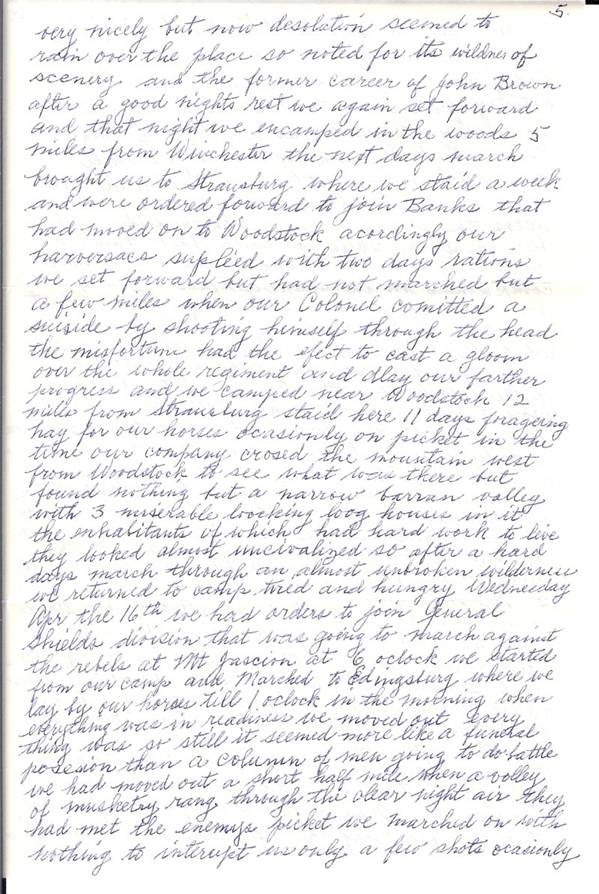 5.
very nicely but now desolation seemed to
rain over the place so noted for its wildnes of
scenery and the former career of John Brown
after a good nights rest we again set forward
and that night we encamped in the woods 5
miles from Winchester the next days march
brought us to Strausburg where we staid a week
and were ordered forward to join Banks that
had moved on to Woodstock acordingly our
harversacs suplied with two days rations
we set forward but had not marched but
a few miles when our Colonel comitted a
suiside by shooting himself through the head
the misfortune had the efect to cast a gloom
over the whole regiment and dlay our farther
progress and we camped near Woodstock 12
miles from Strausburg staid here 11 days forageing
hay for our horses ocasionly on picket in the
time our company crosed the mountain west
from Woodstock to see what was there but
found nothing but a narrow barran valley
with 3 miserable loocking loog houses in it
the enhabitants of which had hard work to live
they looked almost uncivalized so after a hard
days march through an almost unbroken wilderness
we returned to camp tired and hungry Wednesday
Apr the 16th we had orders to join General
Shields division that was going to march against
the rebels at Mt Jascion at 6 oclock we started
from our camp and Marched to Edingsburg where we
lay by our horses till 1 oclock in the morning when
everything was in readiness we moved out every
thing was so still it seemed more like a funeral
posesion than a column of men going to do battle
we had moved out a short half mile when a volley
of musketry rang through the clear night air they
had met the enemys picket we marched on with
nothing to interupt us only a few shots ocasionly